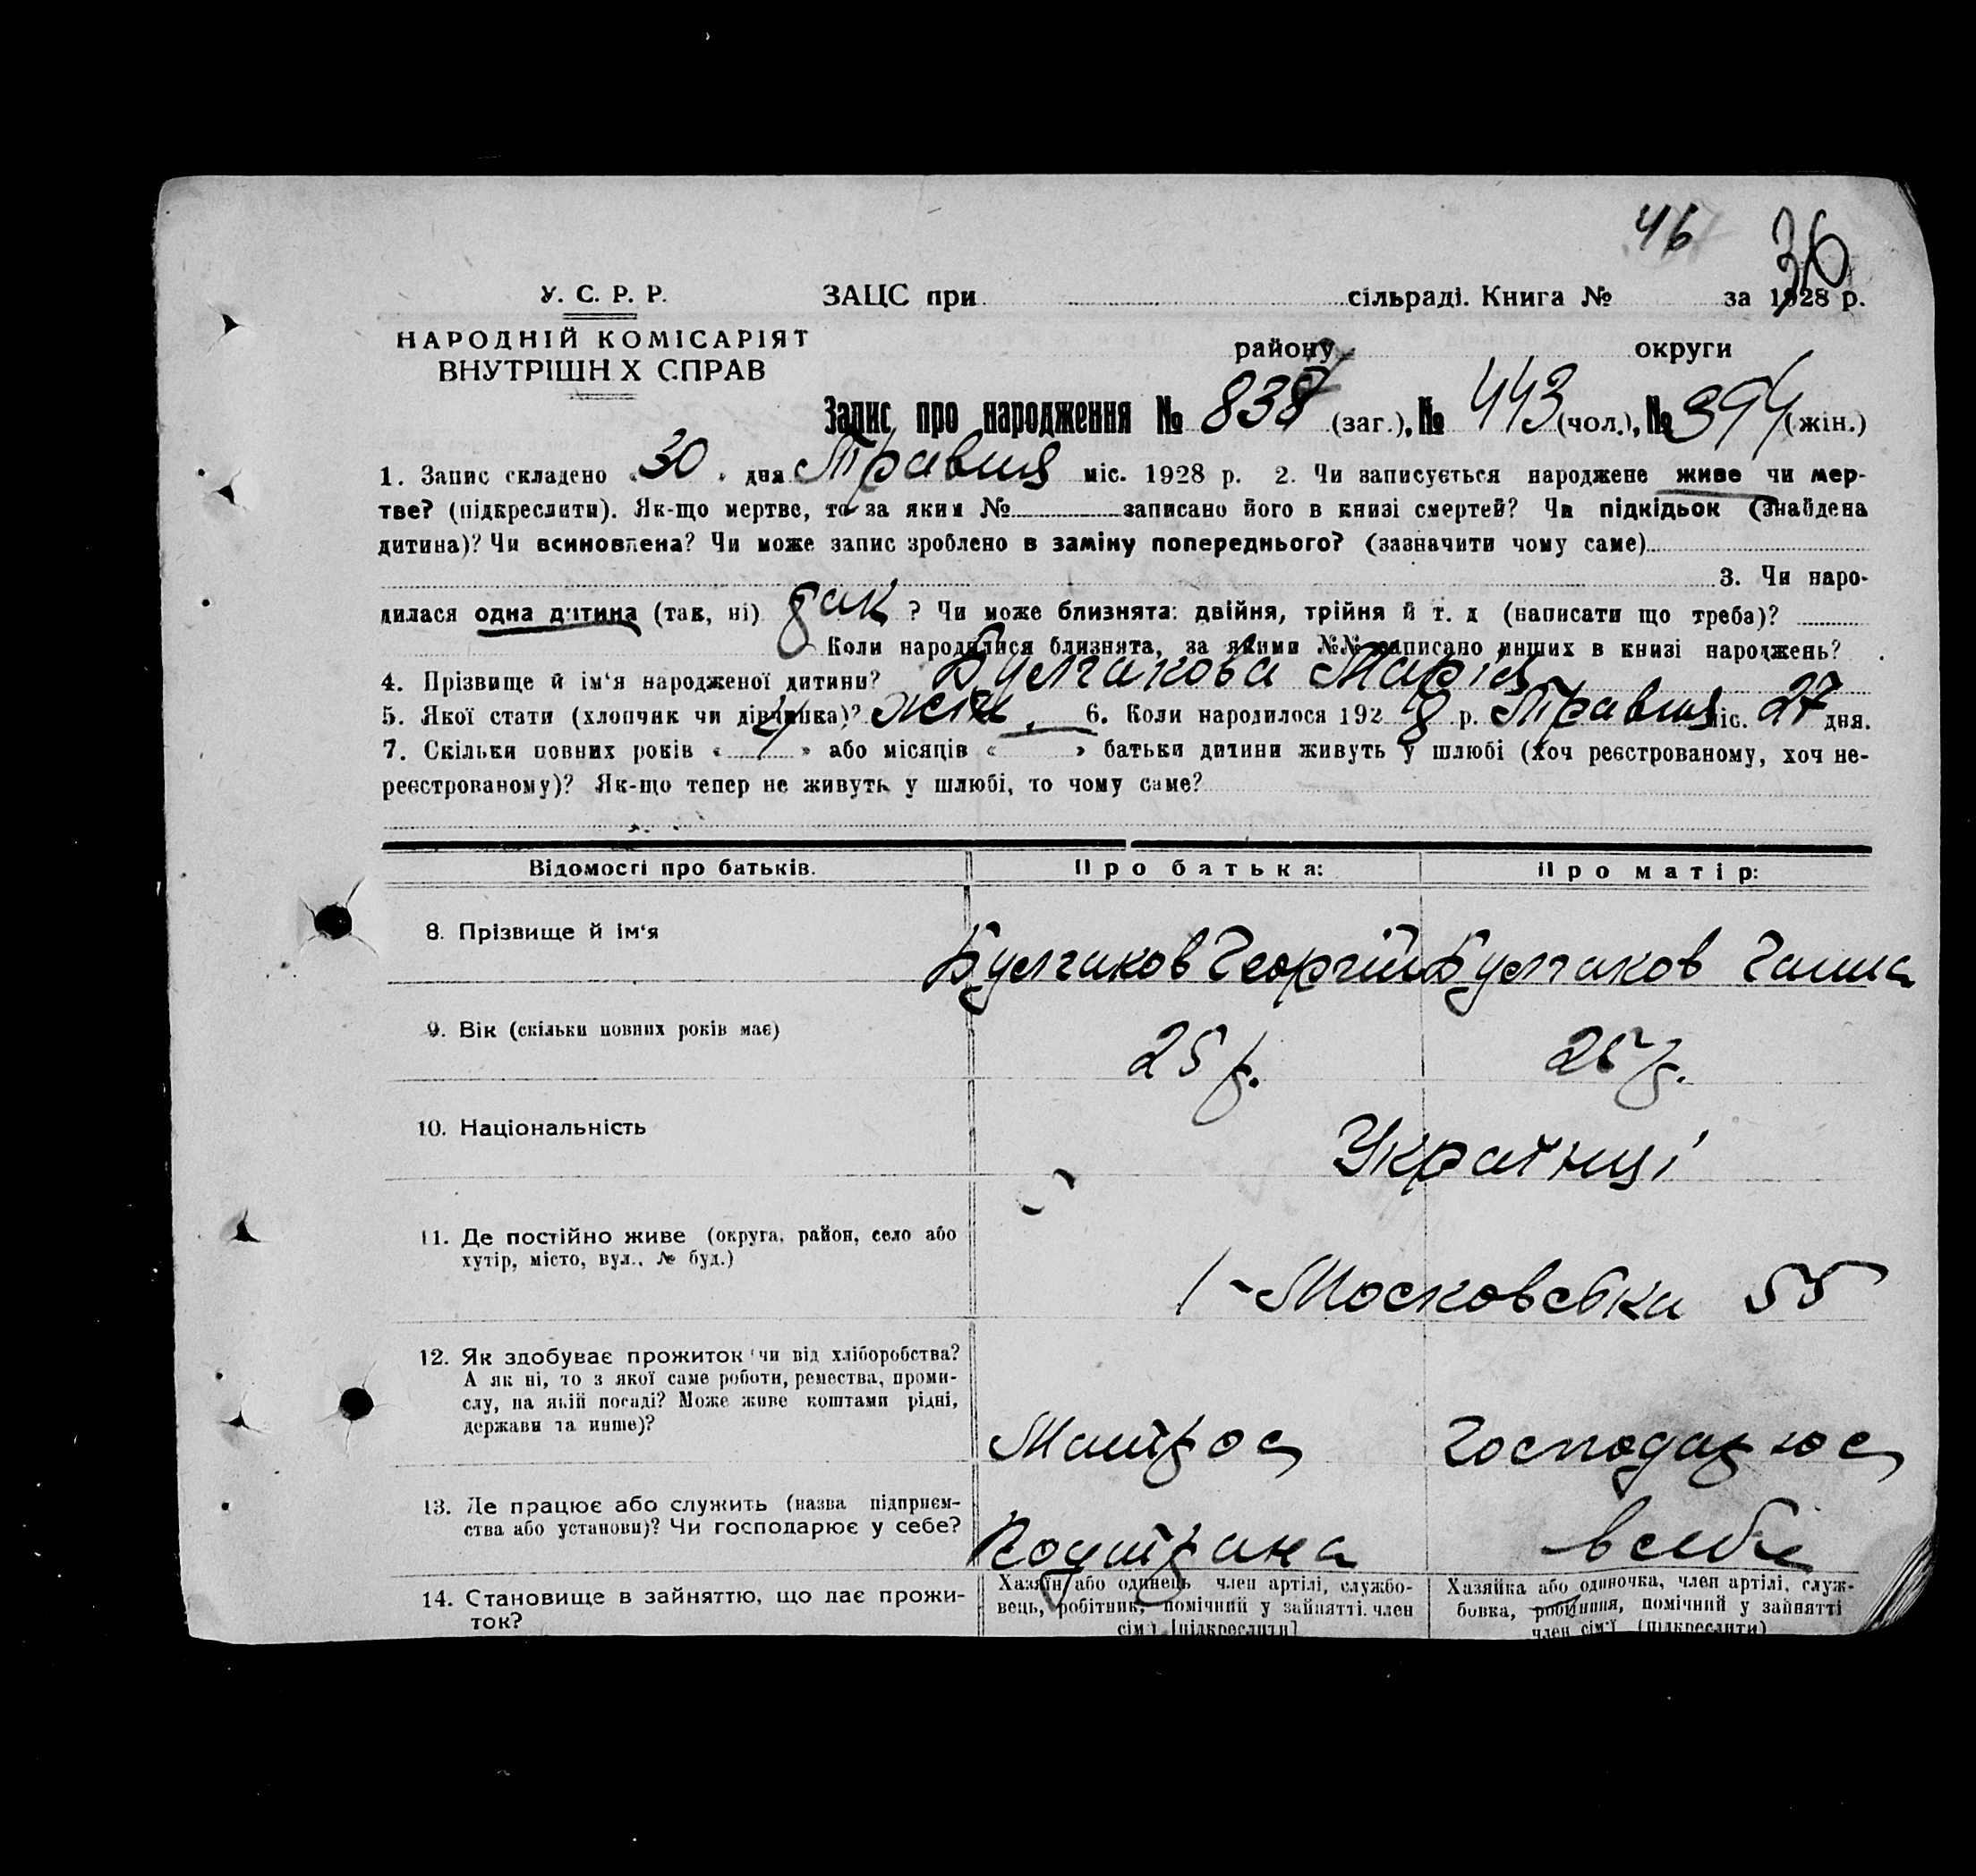 46 36
У. С. Р. Р. ЗАЦС при сільраді. Книга № за 1928 р.
НАРОДНІЙ КОМІСАРІЯТ району округи
ВНУТРІШН Х СПРАВ
Запис про народження № 837 (заг.), № 443 (чол.), № 394 (жін.)
1. Запис складено „30„ дня Травня міс. 1928 р. 2. Чи записується народжене живе чи мер-
тве? (підкреслити). Як-що мертве, то за яким № записано його в книзі смертей? Чи підкідьок (знайдена
дитина)? Чи всиновлена? Чи може запис зроблено в заміну попереднього? (зазначити чому саме)
3. Чи наро-
дилася одна дитина (так, ні) так ? Чи може близнята: двійня, трійня й т. д (написати що треба)?
Коли народилися близнята, за якими №№ записано инших в книзі народжень?
4. Прізвище й ім'я народженої дитини? Булгакова Марія
5. Якої стати (хлопчик чи дівчинка)? жін. 6. Коли народилося 1928 р. Травня міс. 27 дня.
7. Скільки повних років « 4 » або місяців « » батьки дитини живуть у шлюбі (хоч реєстрованому, хоч не-
реєстрованому)? Як-що тепер не живуть у шлюбі, то чому саме?
Відомості про батьків. Про батька: Про матір:
8. Прізвище й ім'я Булгаков Георгій Булгаков Ганна
9. Вік (скільки повних років має) 25 р. 25 р.
10. Національність Українці
11. Де постійно живе (округа, район, село або
хутір, місто, вул., № буд.)
1-Московська 55
12. Як здобуває прожиток чи від хліборобства?
А як ні, то з якої саме роботи, ремества, проми-
слу, на якій посаді? Може живе коштами рідні,
держави та инше)?
Матрос Господарює
13. Де працює або служить (назва підприєм-
ства або установи)? Чи господарює у себе?
в себе
14. Становище в зайняттю, що дає прожи-
ток?
Хазяїн або одинець член артілі, службо-
вець, робітник, помічний у зайнятті член
сім'ї [підкреслити]
Хазяйка або одиночка, член артілі, служ-
бовка, робітниця, помічний у зайнятті
член сім'ї (підкреслити)